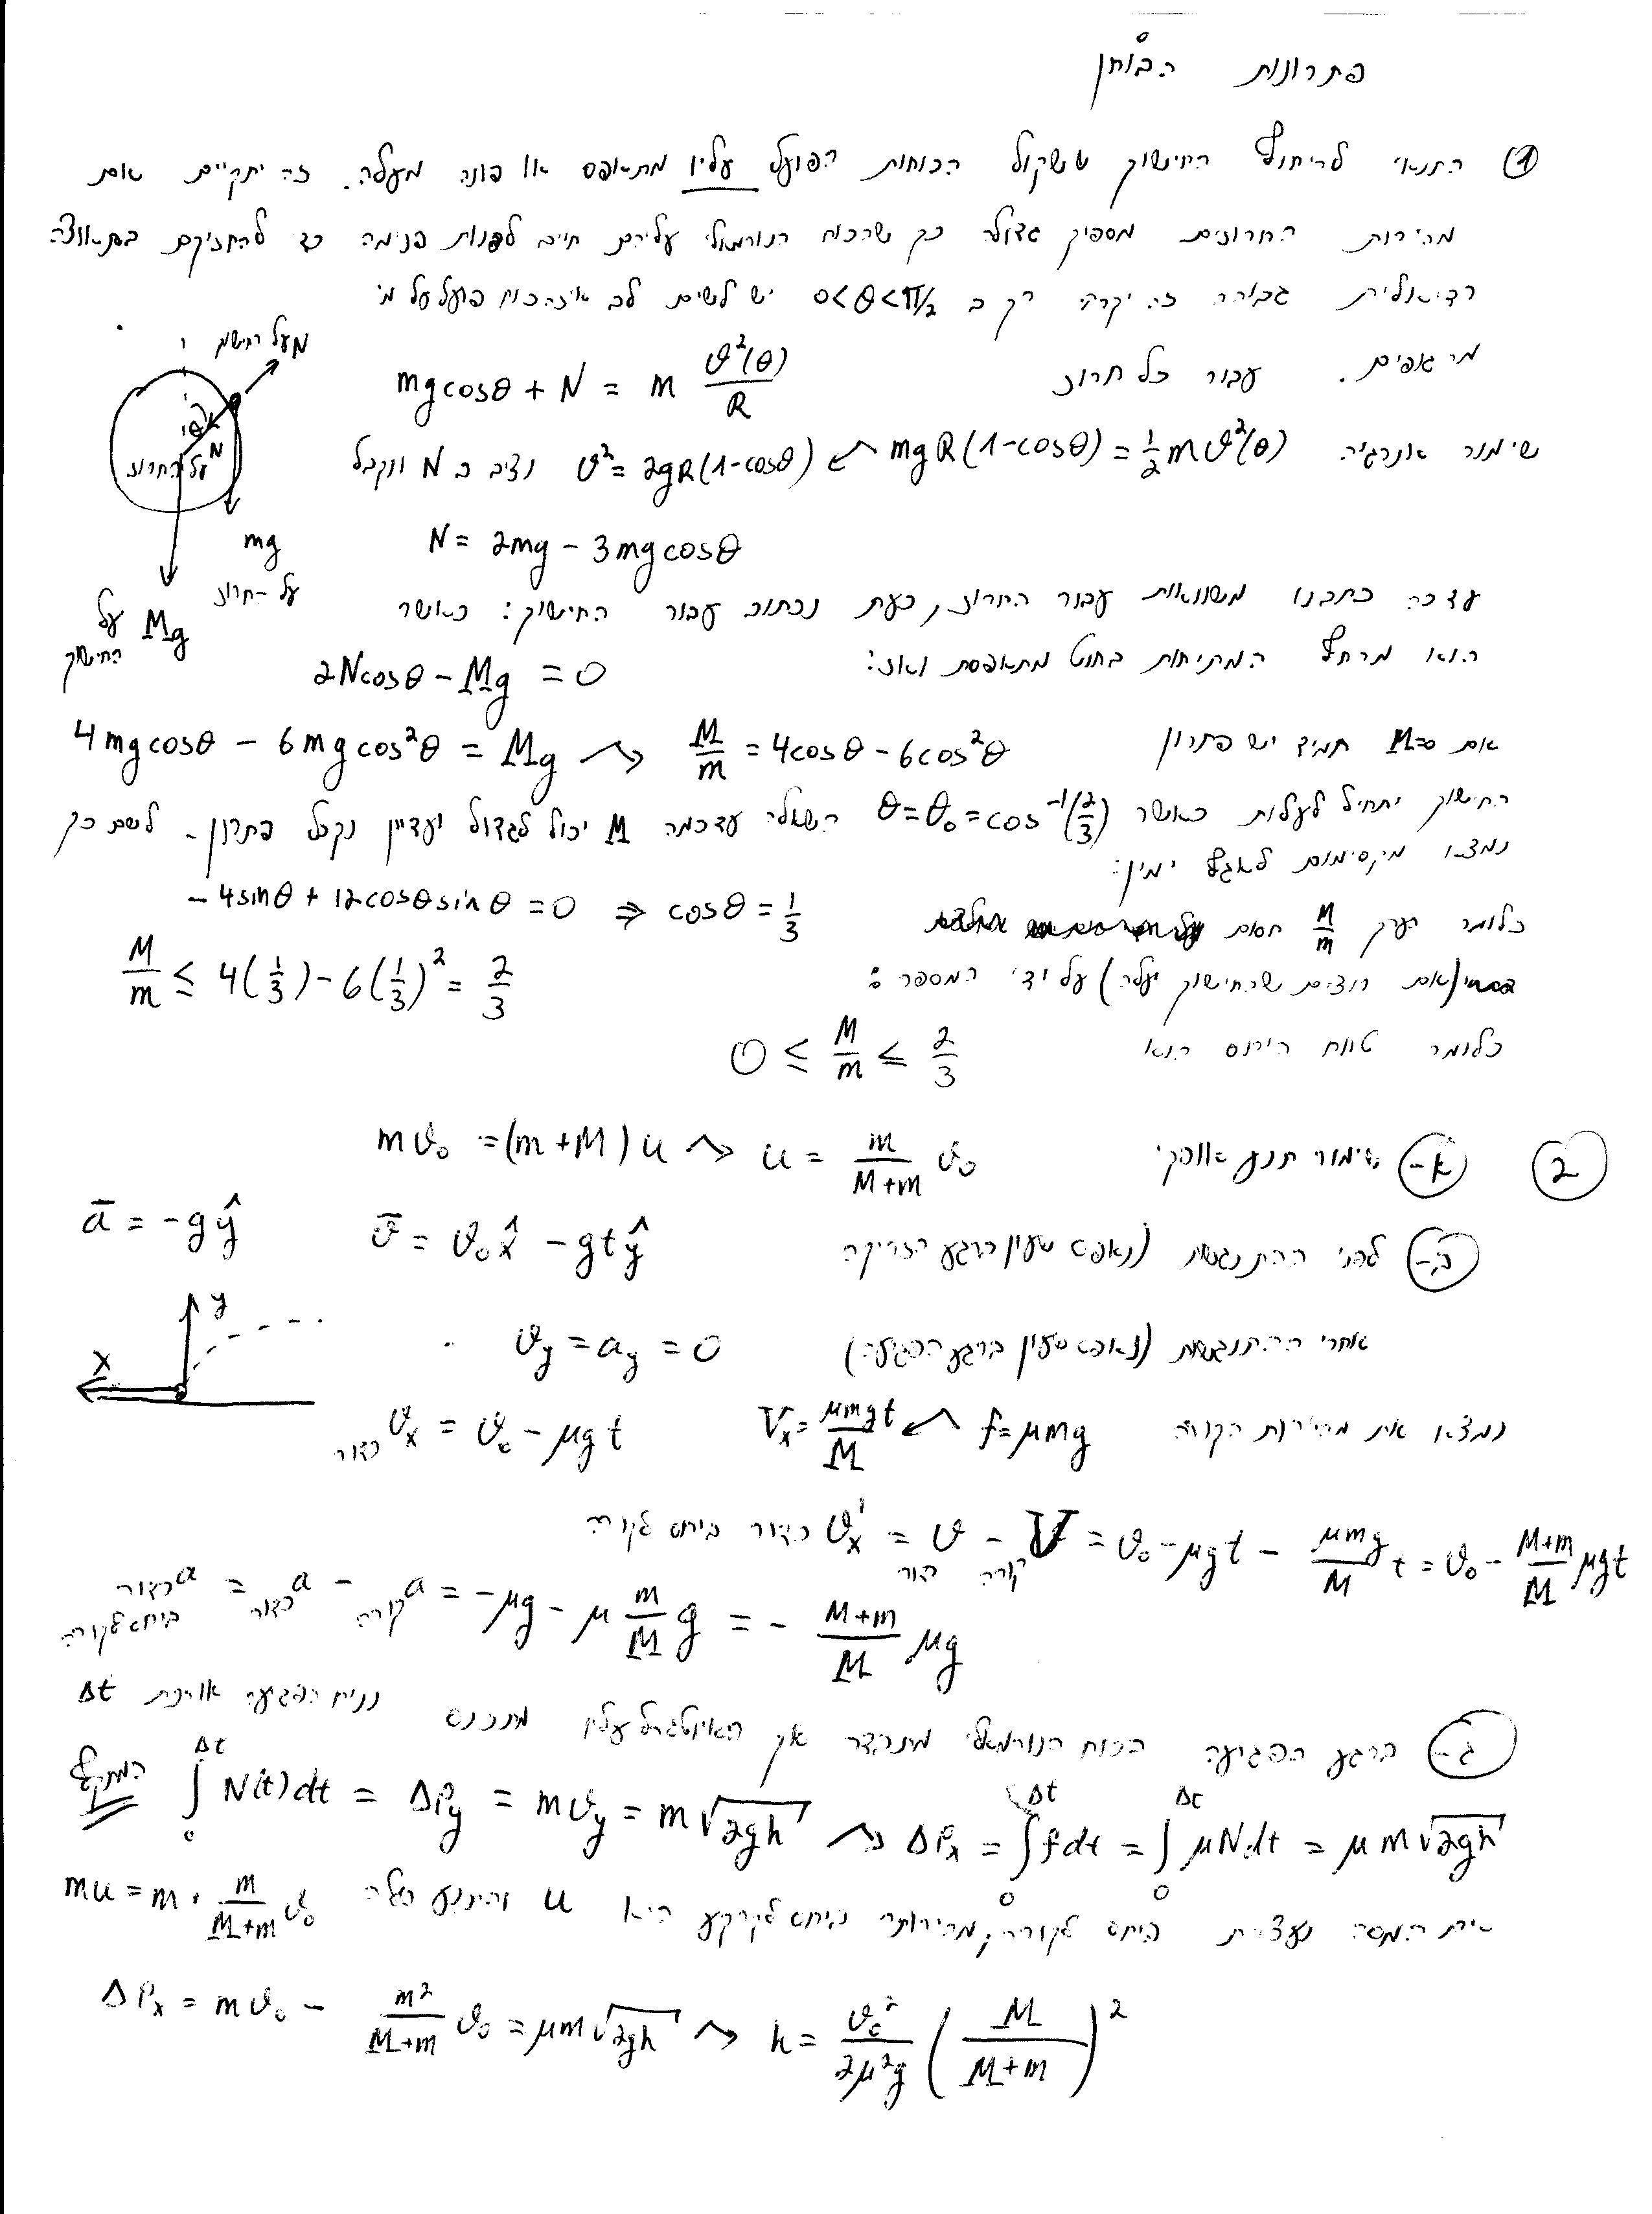 פתרונות הבוחן
① התנאי לריחוף החישוק ששקול הכוחות הפועל עליו מתאפס או פונה מעלה. זה יתקיים אם
מהירות החרוזים מספיק גדולה כך שהכוח הנורמאלי עליהם חייב לפנות פנימה כדי להחזיקם בתאוצה
רדיאלית גבוהה זה יקרה רק ב 0<θ<π/2 יש לשים לב איזה כוח פועל על מי
N על החישוק
מהגופים. עבור כל חרוז mgcosθ + N = m v²(θ)/R
שימור אנרגיה mgR(1-cosθ) = ½mv²(θ) ↜ v² = 2gR(1-cosθ) נציב ב N ונקבל
θ
N על החרוז
N = 2mg - 3mgcosθ
mg על חרוז
Mg על החישוק
עד כה כתבנו משוואות עבור החרוז, כעת נכתוב עבור החישוק: כאשר
הוא מרחף המתיחות בחוט מתאפסת ואז: 2Ncosθ - Mg = 0
4mgcosθ - 6mgcos²θ = Mg ⇝ M/m = 4cosθ - 6cos²θ אם M=0 תמיד יש פתרון
החישוק יתחיל לעלות כאשר θ=θ₀=cos⁻¹(2/3) השאלה עד כמה M יכול לגדול ועדיין נקבל פתרון. לשם כך
נמצא מקסימום לאגף ימין:
-4sinθ + 12cosθsinθ = 0 ⇒ cosθ = 1/3
כלומר הערך M/m חסום
(אם רוצים שהחישוק יעלה) על ידי המספר: M/m ≤ 4(1/3) - 6(1/3)² = 2/3
כלומר טווח היחס הוא 0 ≤ M/m ≤ 2/3
② א- שימור תנע אופקי: mv₀ = (m+M)u ⇝ u = m/(M+m) v₀
ב- לפני ההתנגשות (נאפס שעון ברגע הזריקה v̄ = v₀x̂ - gtŷ ā = -gŷ
y
x
אחרי ההתנגשות (נאפס שעון ברגע הפגיעה) v_y = a_y = 0
נמצא את מהירות הקורה f=μmg ↜ V_x = μmgt/M v_x = v₀ - μgt כדור
כדור ביחס לקורה v'_x = v כדור - V קורה = v₀ - μgt - μmg/M t = v₀ - (M+m)/M μgt
a כדור ביחס לקורה = a כדור - a קורה = -μg - μ m/M g = - (M+m)/M μg
ג- ברגע הפגיעה הכוח הנורמאלי מתבדר אך האינטגרל עליו מתכנס נניח הפגיעה אורכת Δt
המתקף ∫₀^Δt N(t)dt = ΔP_y = mv_y = m√2gh ⇝ ΔP_x = ∫₀^Δt fdt = ∫₀^Δt μNdt = μm√2gh
אם המסה נעצרת ביחס לקורה, מהירותה ביחס לקרקע היא u והתנע שלה mu = m · m/(M+m) v₀
ΔP_x = mv₀ - m²/(M+m) v₀ = μm√2gh ⇝ h = v₀²/2μ²g (M/(M+m))²